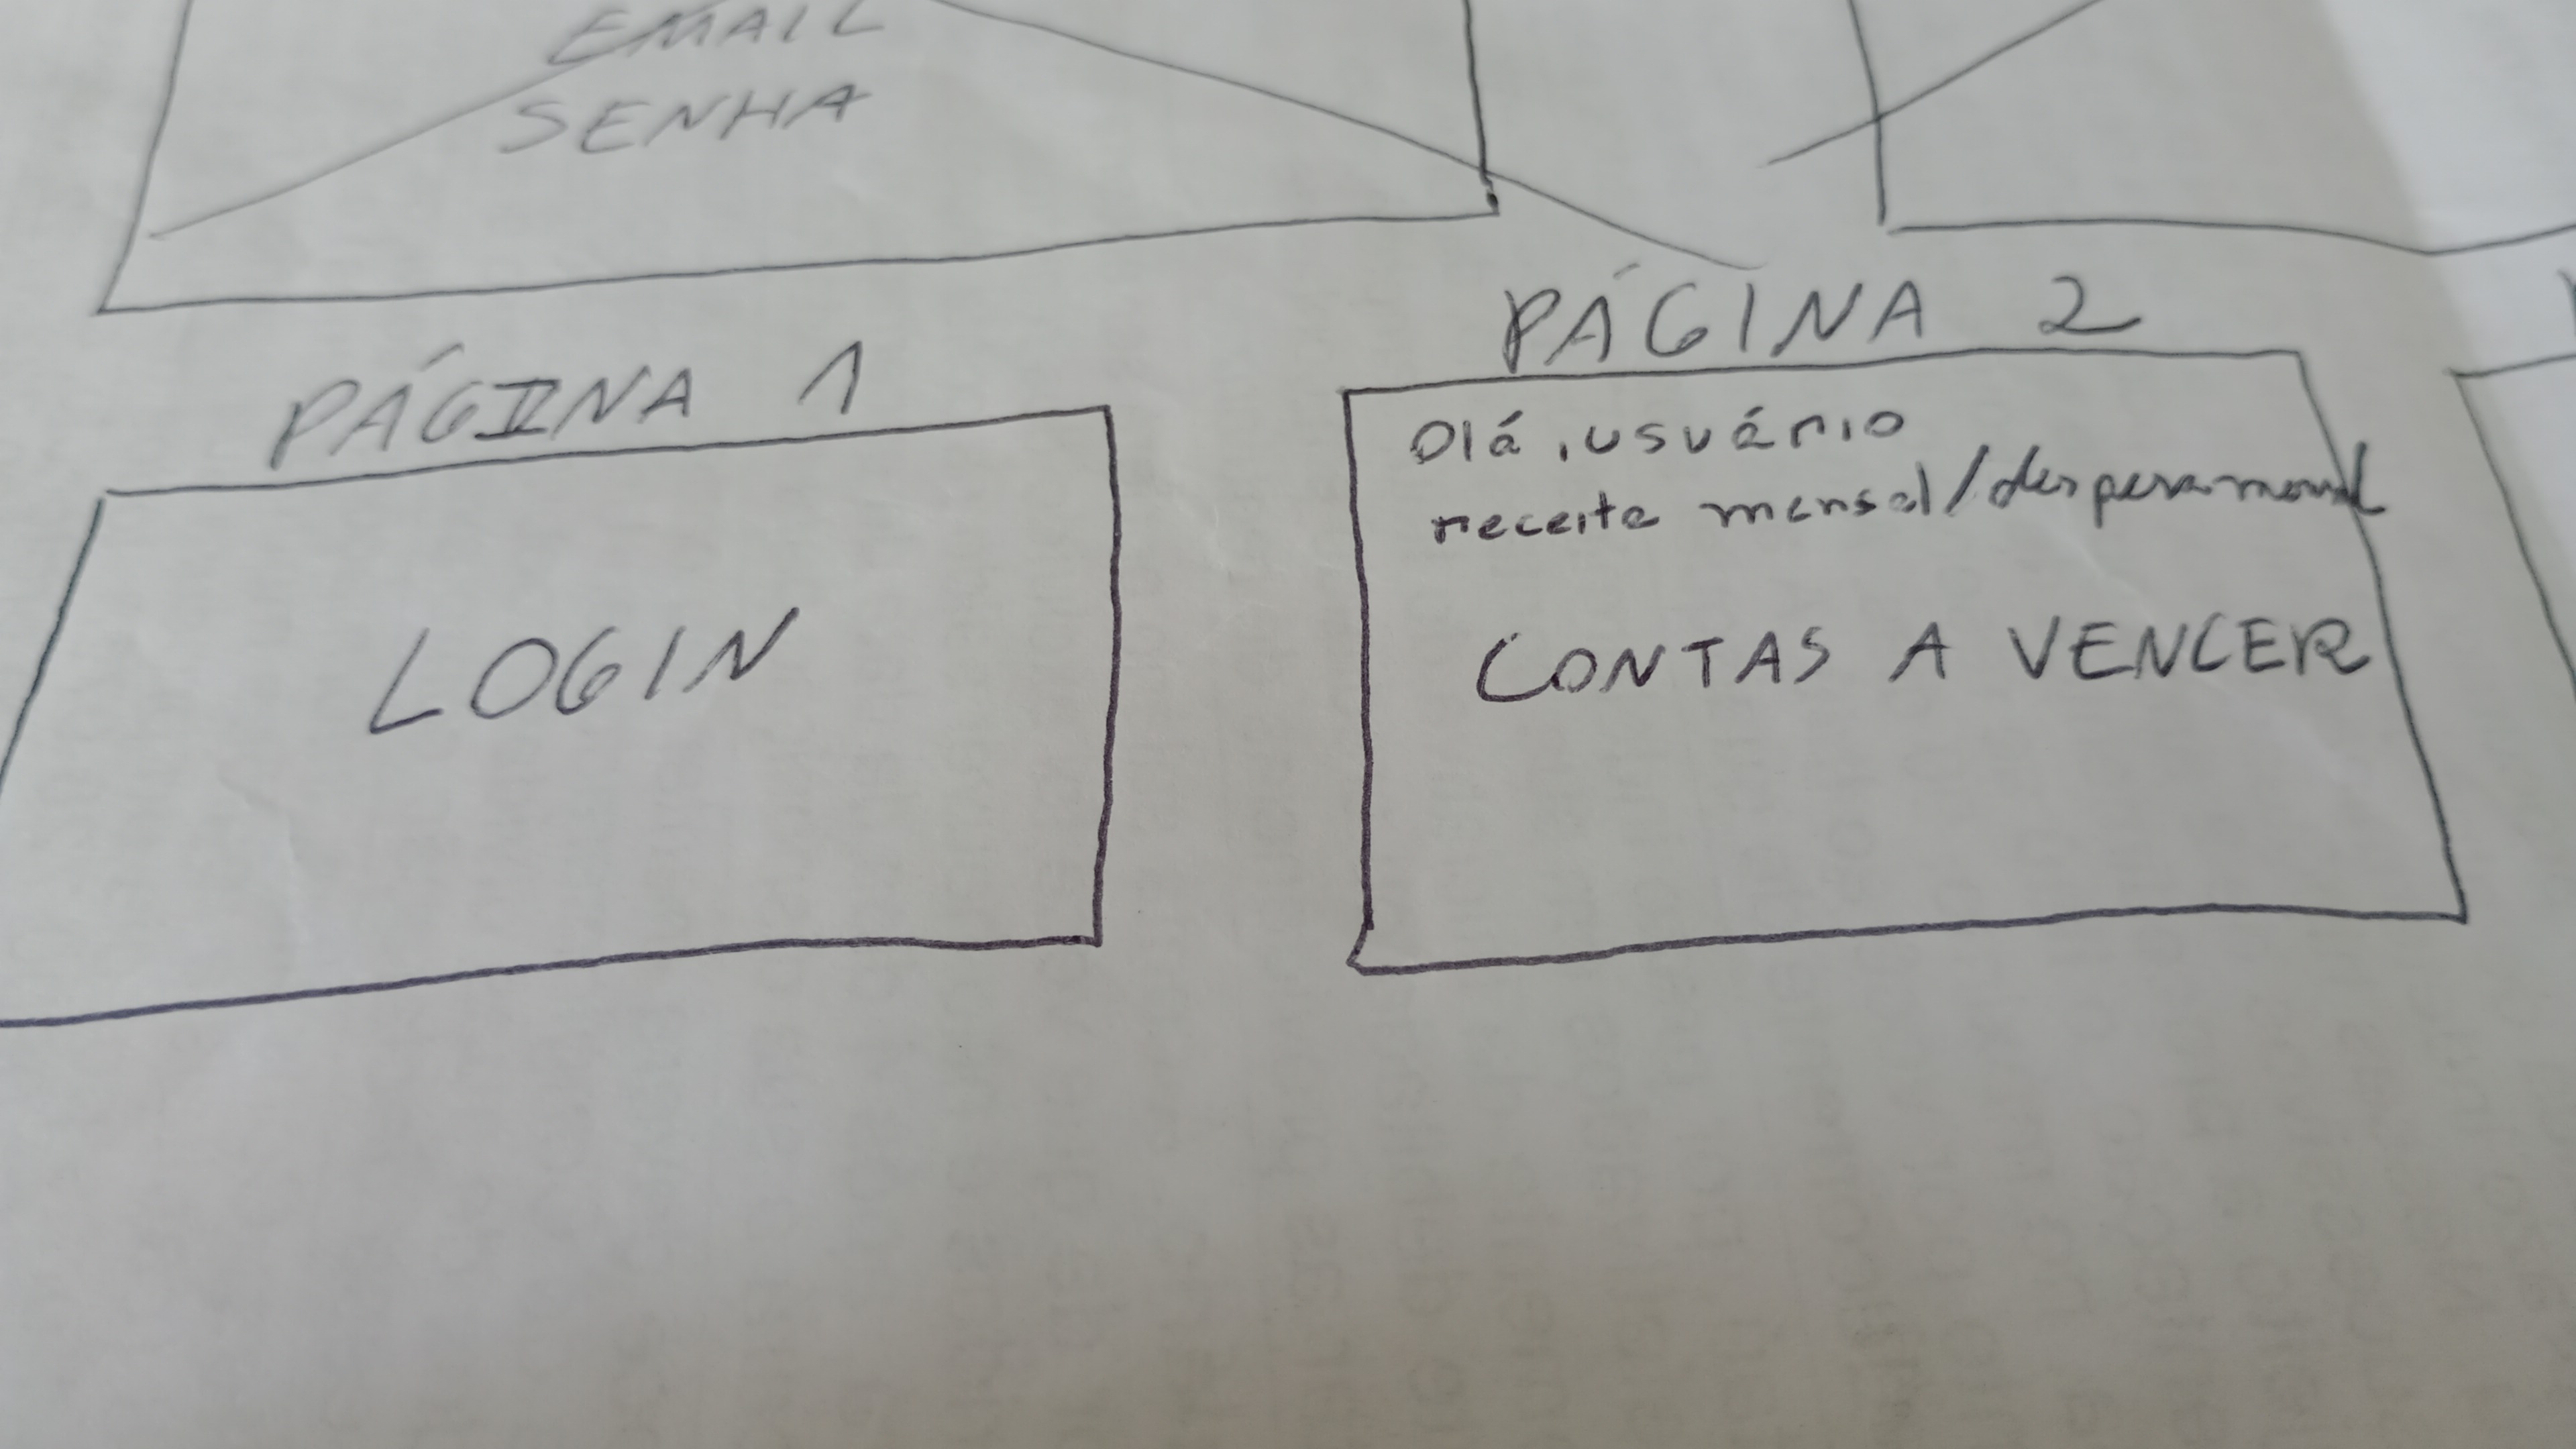 EMAIL
SENHA
PÁGINA 1
LOGIN
PÁGINA 2
Olá, usuário
receita mensal/despesa mensal
CONTAS A VENCER